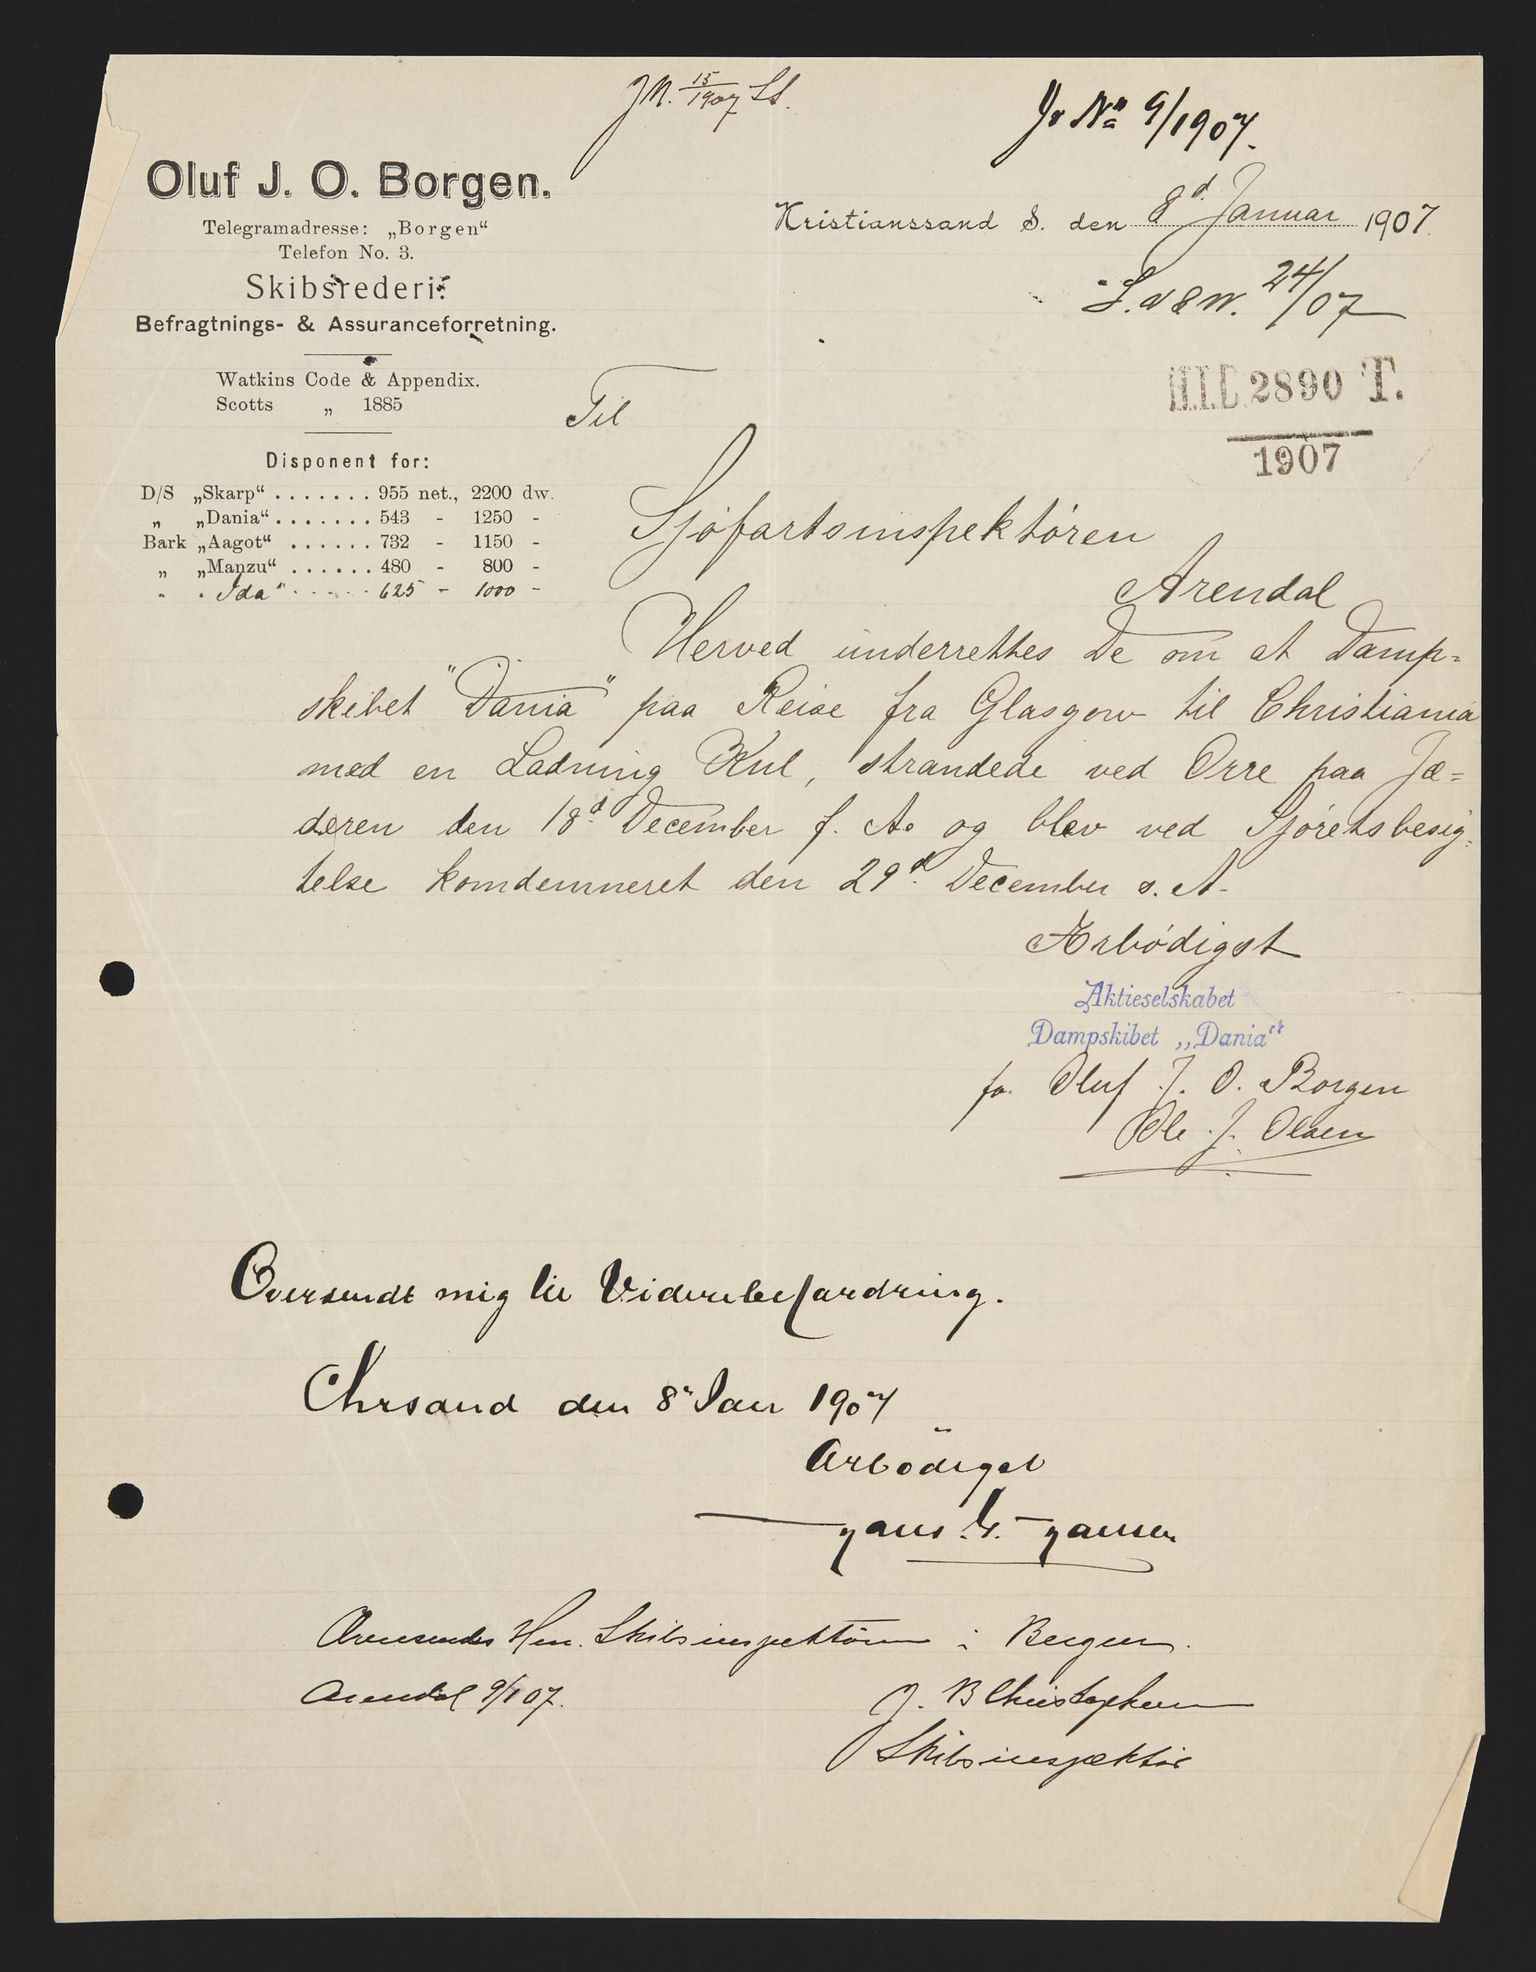 J.N. 15/1907 St.
Jr No 9/1907.
Oluf J. O. Borgen.
Telegramadresse: „Borgen“
Telefon No. 3.
Skibsrederi.
Befragtnings- & Assuranceforretning.
Watkins Code & Appendix.
Scotts „ 1885
Disponent for:
D/S „Skarp“ ....... 955 net., 2200 dw.
„ „Dania“ ....... 543 - 1250 -
Bark „Aagot“ ...... 732 - 1150 -
„ „Manzu“ ...... 480 - 800 -
" "Ida" ...... 625 - 1000 -
Kristianssand S. den 8d Januar 1907.
24/07
2890 T.
1907
Til
Sjøfartsinspektøren
Arendal
Herved underrettes De om at Damp=
skibet "Dania" paa Reise fra Glasgow til Christiania
med en Ladning Kul, strandede ved Orre paa Jæ=
deren den 18d December f. A. og blev ved Sjøretsbesig=
telse komdemneret den 29d December s. A.
Ærbødigst
Aktieselskabet
Dampskibet „Dania“
fo. Oluf J. O. Borgen
Ole J. Olsen
Oversendt mig til Viderebefardring.
Chrsand den 8' Jan 1907
Ærbödigst
Hans Hansen
Oversendes Hrr. Skibsinspektøren i Bergen.
Arendal 9/1 07.
J. B Christophersen
Skibsinspektør